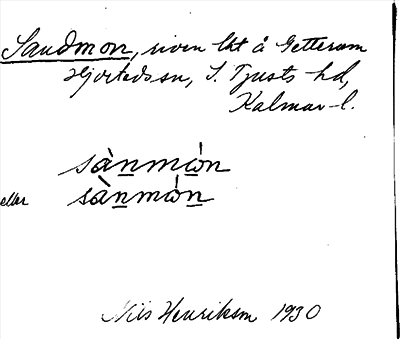 Sandmon, riven lht å Getteram
Hjorteds sn, S. Tjusts hd,
Kalmar l.
sànmón
eller sànmón
Nils Henrikson 1930